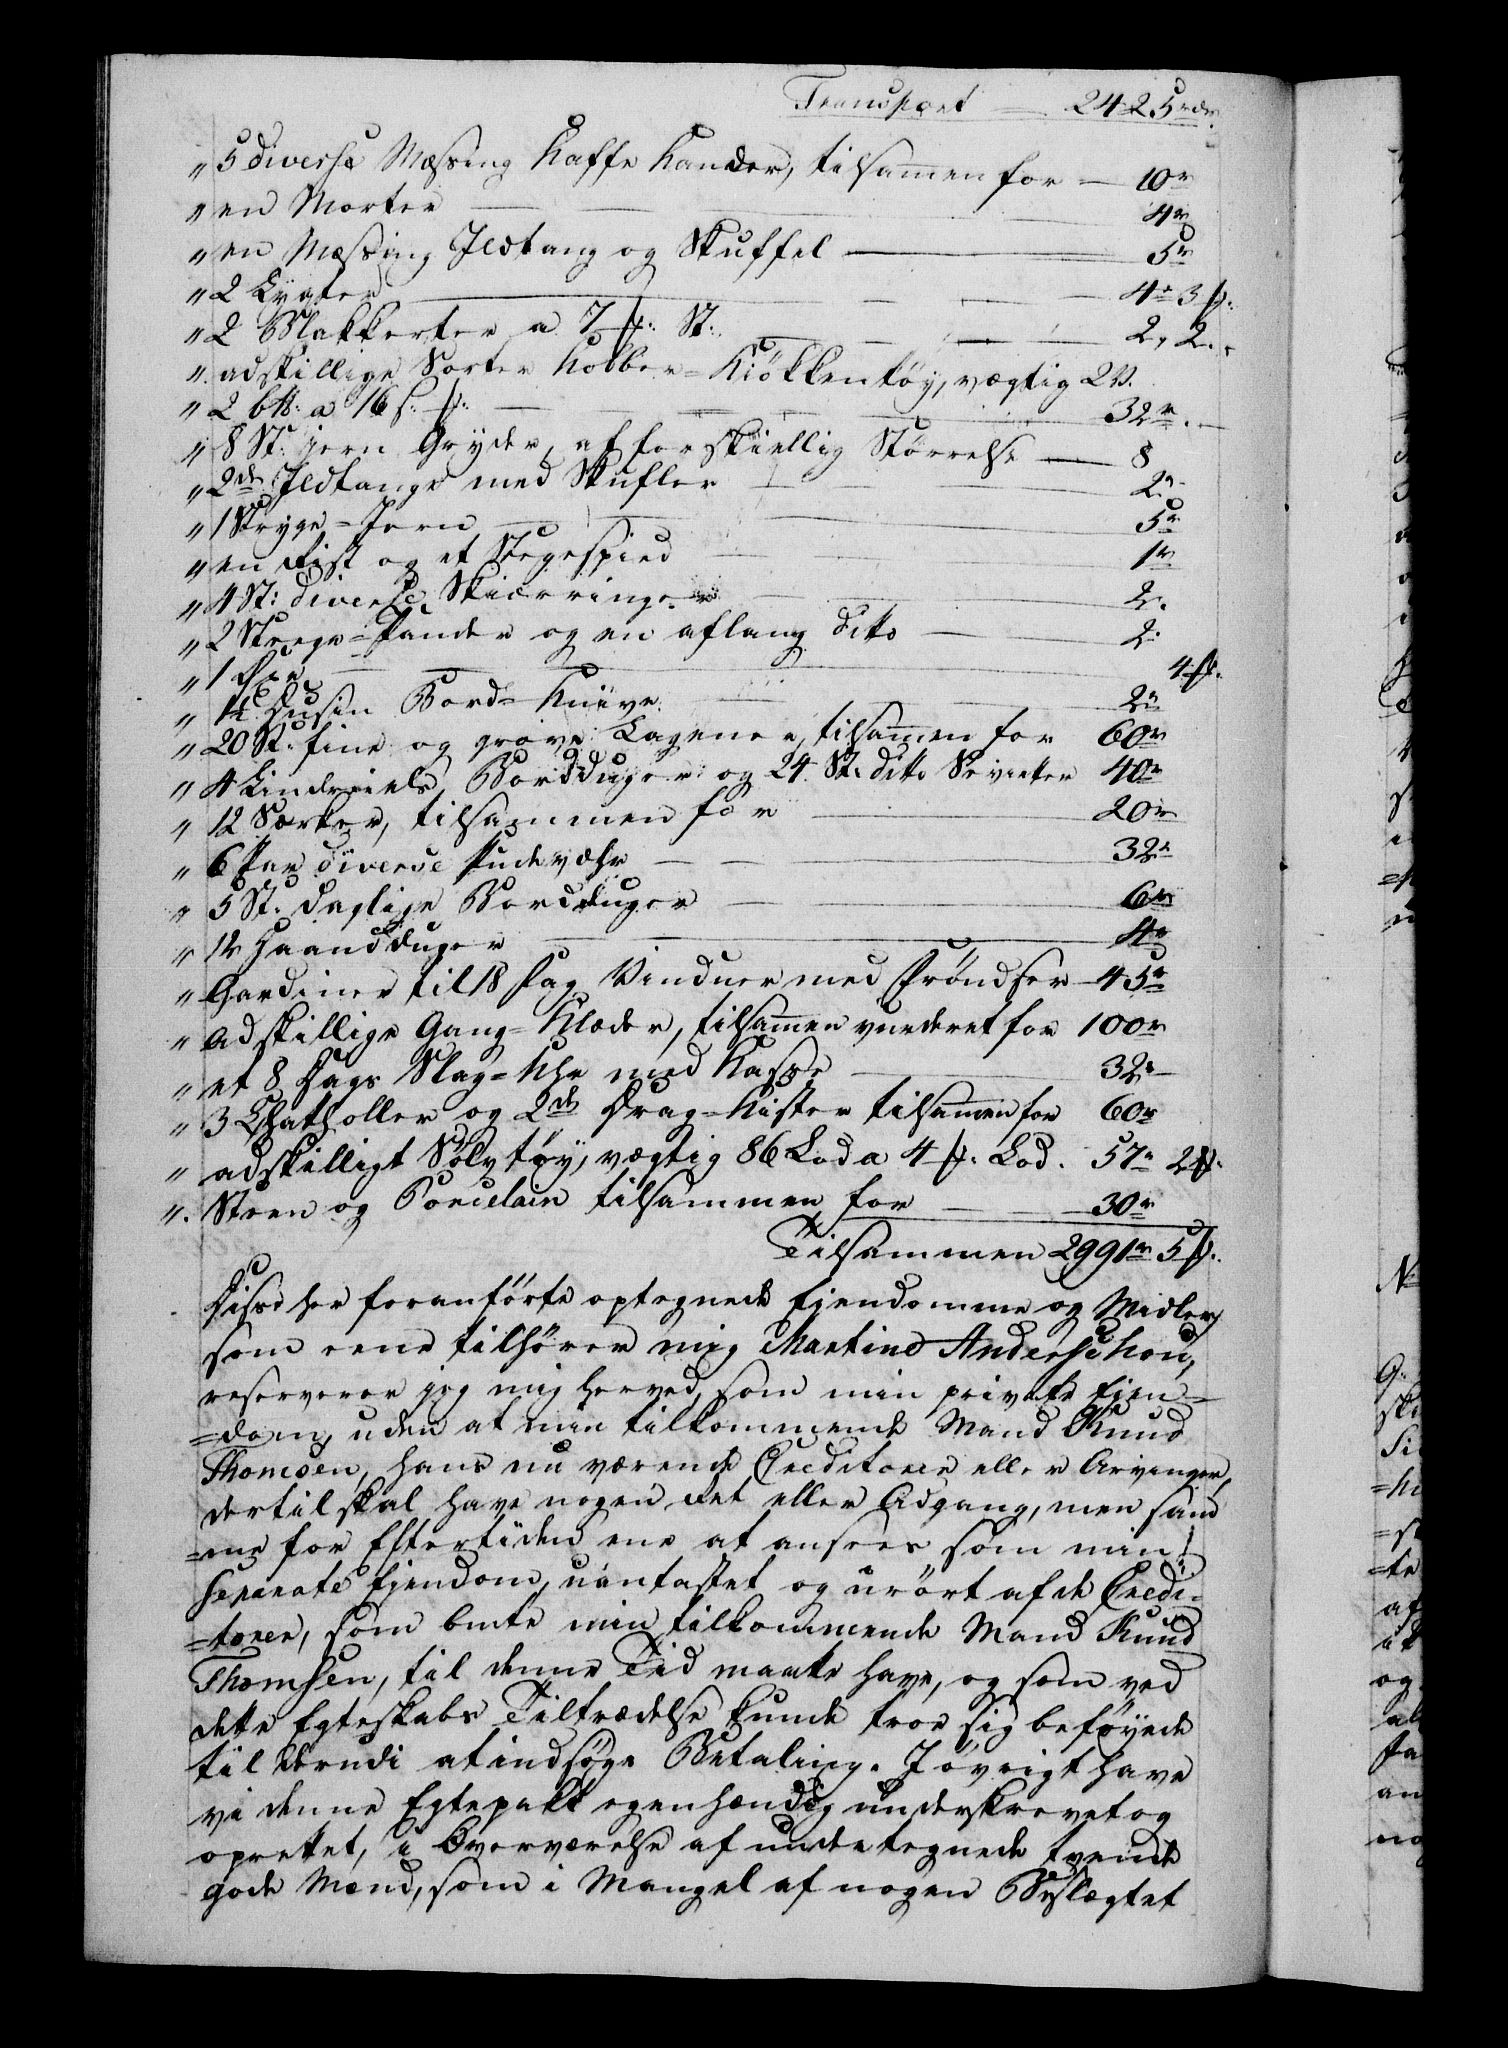 Transport — 2425 rdr.
" 5 diverse Messing Kaffe Kander, tilsamen for — 10 r
" en Morter — 4 r
" en Messing Ildtang og Skuffel — 5 r
" 2 Lygter — 4 r 3 ß.
" 2 Blakkerter a 7 ß. St: — 2, 2.
" adskillige Sorter Kobber-Kiökkentöy, vægtig 2 V.
" 2 b℔: a 16 s. ß. — 32 r. —
" 8 St: jern Gryder, af forskiellig Störrelse — 8
" 2de Ildtange med Skufler — 2 r
" 1 Stryge-Jern — 5 r
" en Rist og et Stegespied — 1 r
" 4 St: diverse Skiærringer — 2.
" 2 Stege-Pander og en aflang ditto — 2.
" 1 Öxe — 4 ß.
" 1½ Dusin Bord-Knive — 2 r
" 20 St. fine og grove Lagener, tilsamen for 60 r
" 4 Bordduger og 24 St. ditto Servietter 40 r
" 12 Særker, tilsammen for — 20 r
" 6 Par diverse Pudevæhr — 32 r
" 5 St. daglige Bordduger — 6 r
" 12 Haandduger — 4 r
" Gardiner til 18 Fag Vinduer med Fröndser — 45 r
" adskillige Gang-Klæder, tilsamen vurderet for 100 r
" et 8 Dags Slag-Uhr med Kasse — 32 r
" 3 Chatholler og 2de Drag-Kister tilsamen for 60 r
" adskilligt Sölvtöy, vægtig 86 Lod a 4 ß. Lod. 57 r 2 ß.
" Steen og Porcelain tilsammen for — 30 r
Tilsammen 2991 r 5 ß.
Disse her foranförte optegnede Ejendomme og Midler,
som eene tilhörer mig Martine Anderschou,
reserverer jeg mig herved, som min private Ejen-
=dom, uden at min tilkommende Mand Knud
Thomsen, hans nu værende Creditorer eller Arvinger,
dertil skal have nogen Ret eller Adgang, men sam
=me for Eftertiden ene at ansees, som min
separate Ejendom, uantastet og urört af de Credi-
=torer, som bemte min tilkommende Mand Knud
Thomsen, til denne Tid maatte have, og som ved
dette Egteskabs Tiltrædelse kunde troe sig beföyede
til derudi at indsöge Betaling. I övrigt have
vi denne Egtepakt egenhændig underskrevet og
oprettet, i Overværelse af undertegnede tvende
gode Mænd, som i Mangel af nogen Beslægtet